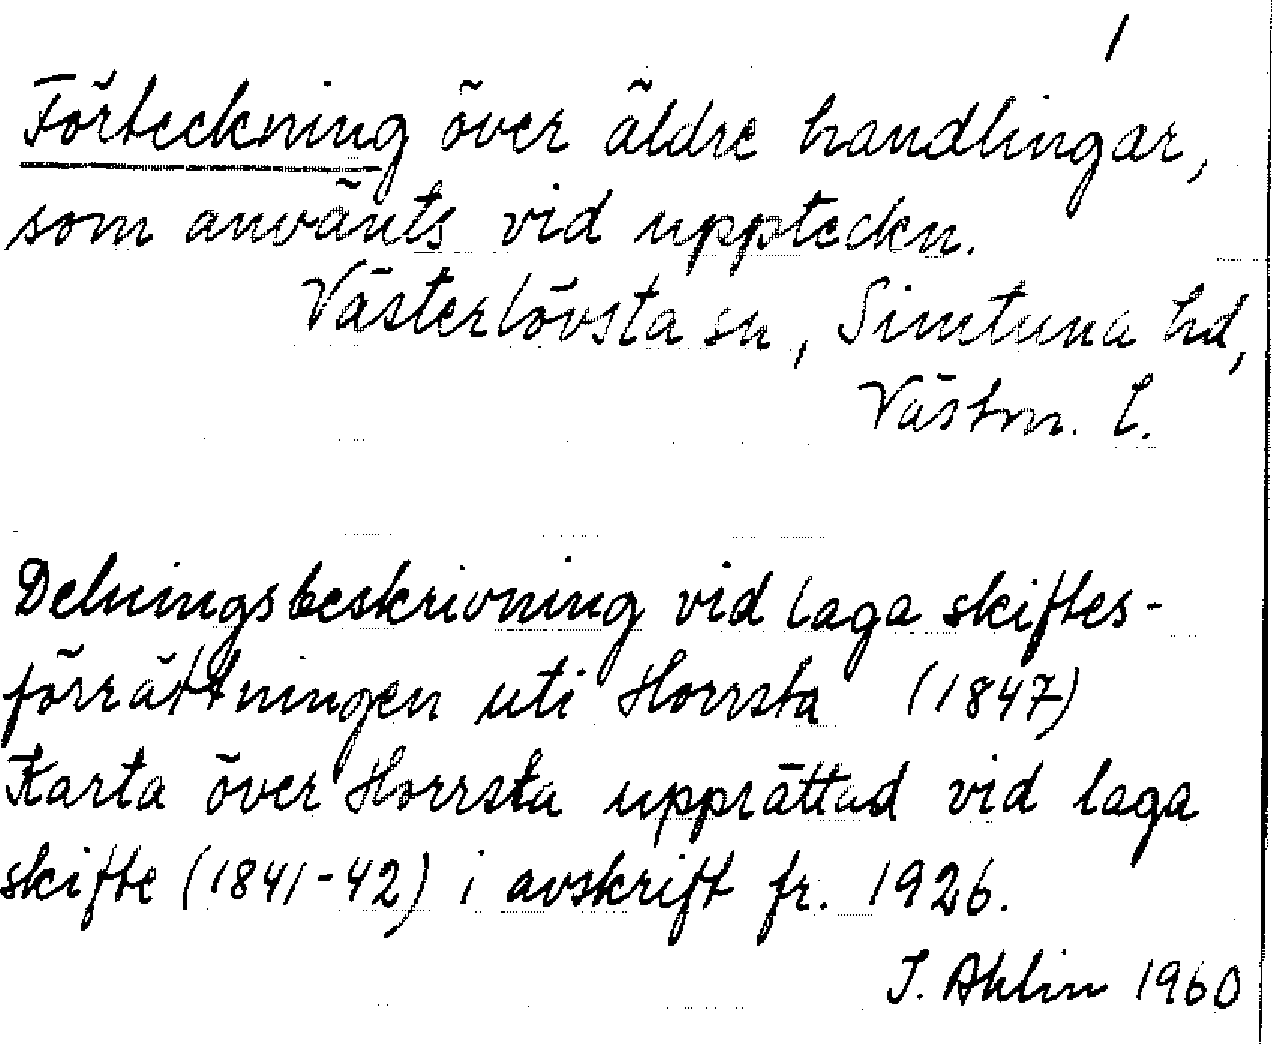 1
Förteckning över äldre handlingar,
som använts vid uppteckn.
Västerlövsta sn, Simtuna hd,
Västm. l.
Delningsbeskrivning vid laga skiftes-
förrättningen uti Horrsta (1847)
Karta över Horrsta upprättad vid laga
skifte (1841-42) i avskrift fr. 1926.
I. Ahlin 1960